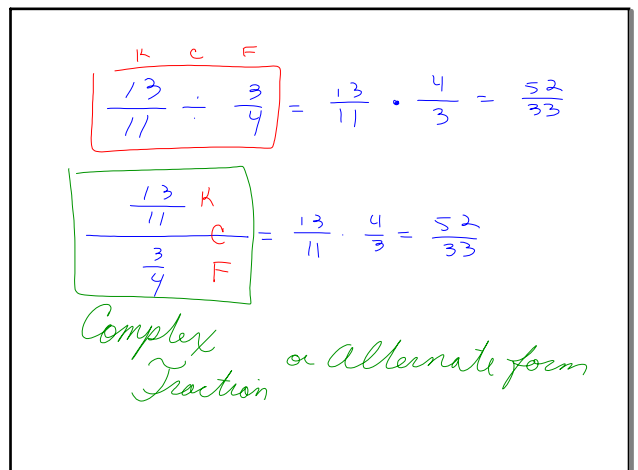 K C F
13/11 ÷ 3/4 = 13/11 • 4/3 = 52/33
13/11 K
C = 13/11 · 4/3 = 52/33
3/4 F
Complex
Fraction or Alternate form